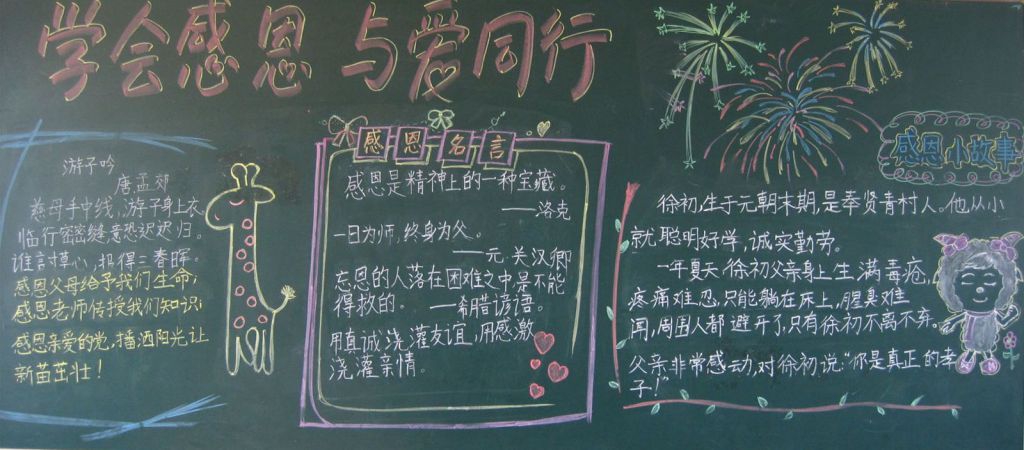 学会感恩 与爱同行
游子吟
唐孟郊
慈母手中线,游子身上衣
临行密密缝,意恐迟迟归。
谁言寸草心,报得三春晖。
感恩父母给予我们生命,
感恩老师传授我们知识;
感恩亲爱的党,播洒阳光让
新苗茁壮!
感恩名言
感恩是精神上的一种宝藏。
——洛克
一日为师,终身为父。
——元 关汉卿
忘恩的人落在困难之中是不能
得救的。 ——希腊谚语。
用真诚浇灌友谊,用感激
浇灌亲情。
感恩小故事
徐初,生于元朝末期,是奉贤青村人。他从小
就聪明好学,诚实勤劳。
一年夏天徐初父亲身上生满毒疮,
疼痛难忍,只能躺在床上,腥臭难
闻,周围人都避开了,只有徐初不离不弃。
父亲非常感动,对徐初说:“你是真正的孝
子!”